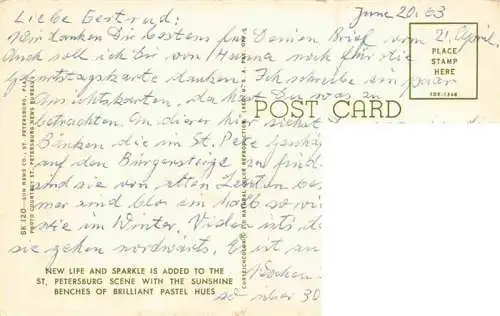 June 20. 63
Liebe Gertrud:
Wir danken Dir bestens für Deinen Brief vom 21. April.
Auch soll ich Dir von Hanna noch für die
Geburtstagskarte danken. Ich schreibe ein paar
Ansichtskarten, da hast Du was zu
betrachten. An dieser hier siehst
Bänken die im St. Pete
auf den Bürgersteige zu find
sie von alten Leuten
mer sind blos ein halb so
wie im Winter. Viele
sie gehen nordwärts. Es ist
Wochen
so über 30
PLACE
STAMP
HERE
POST CARD
SK 120—SUN NEWS CO., ST. PETERSBURG, FLA.
PHOTO COURTESY ST. PETERSBURG NEWS BUREAU
NEW LIFE AND SPARKLE IS ADDED TO THE
ST. PETERSBURG SCENE WITH THE SUNSHINE
BENCHES OF BRILLIANT PASTEL HUES